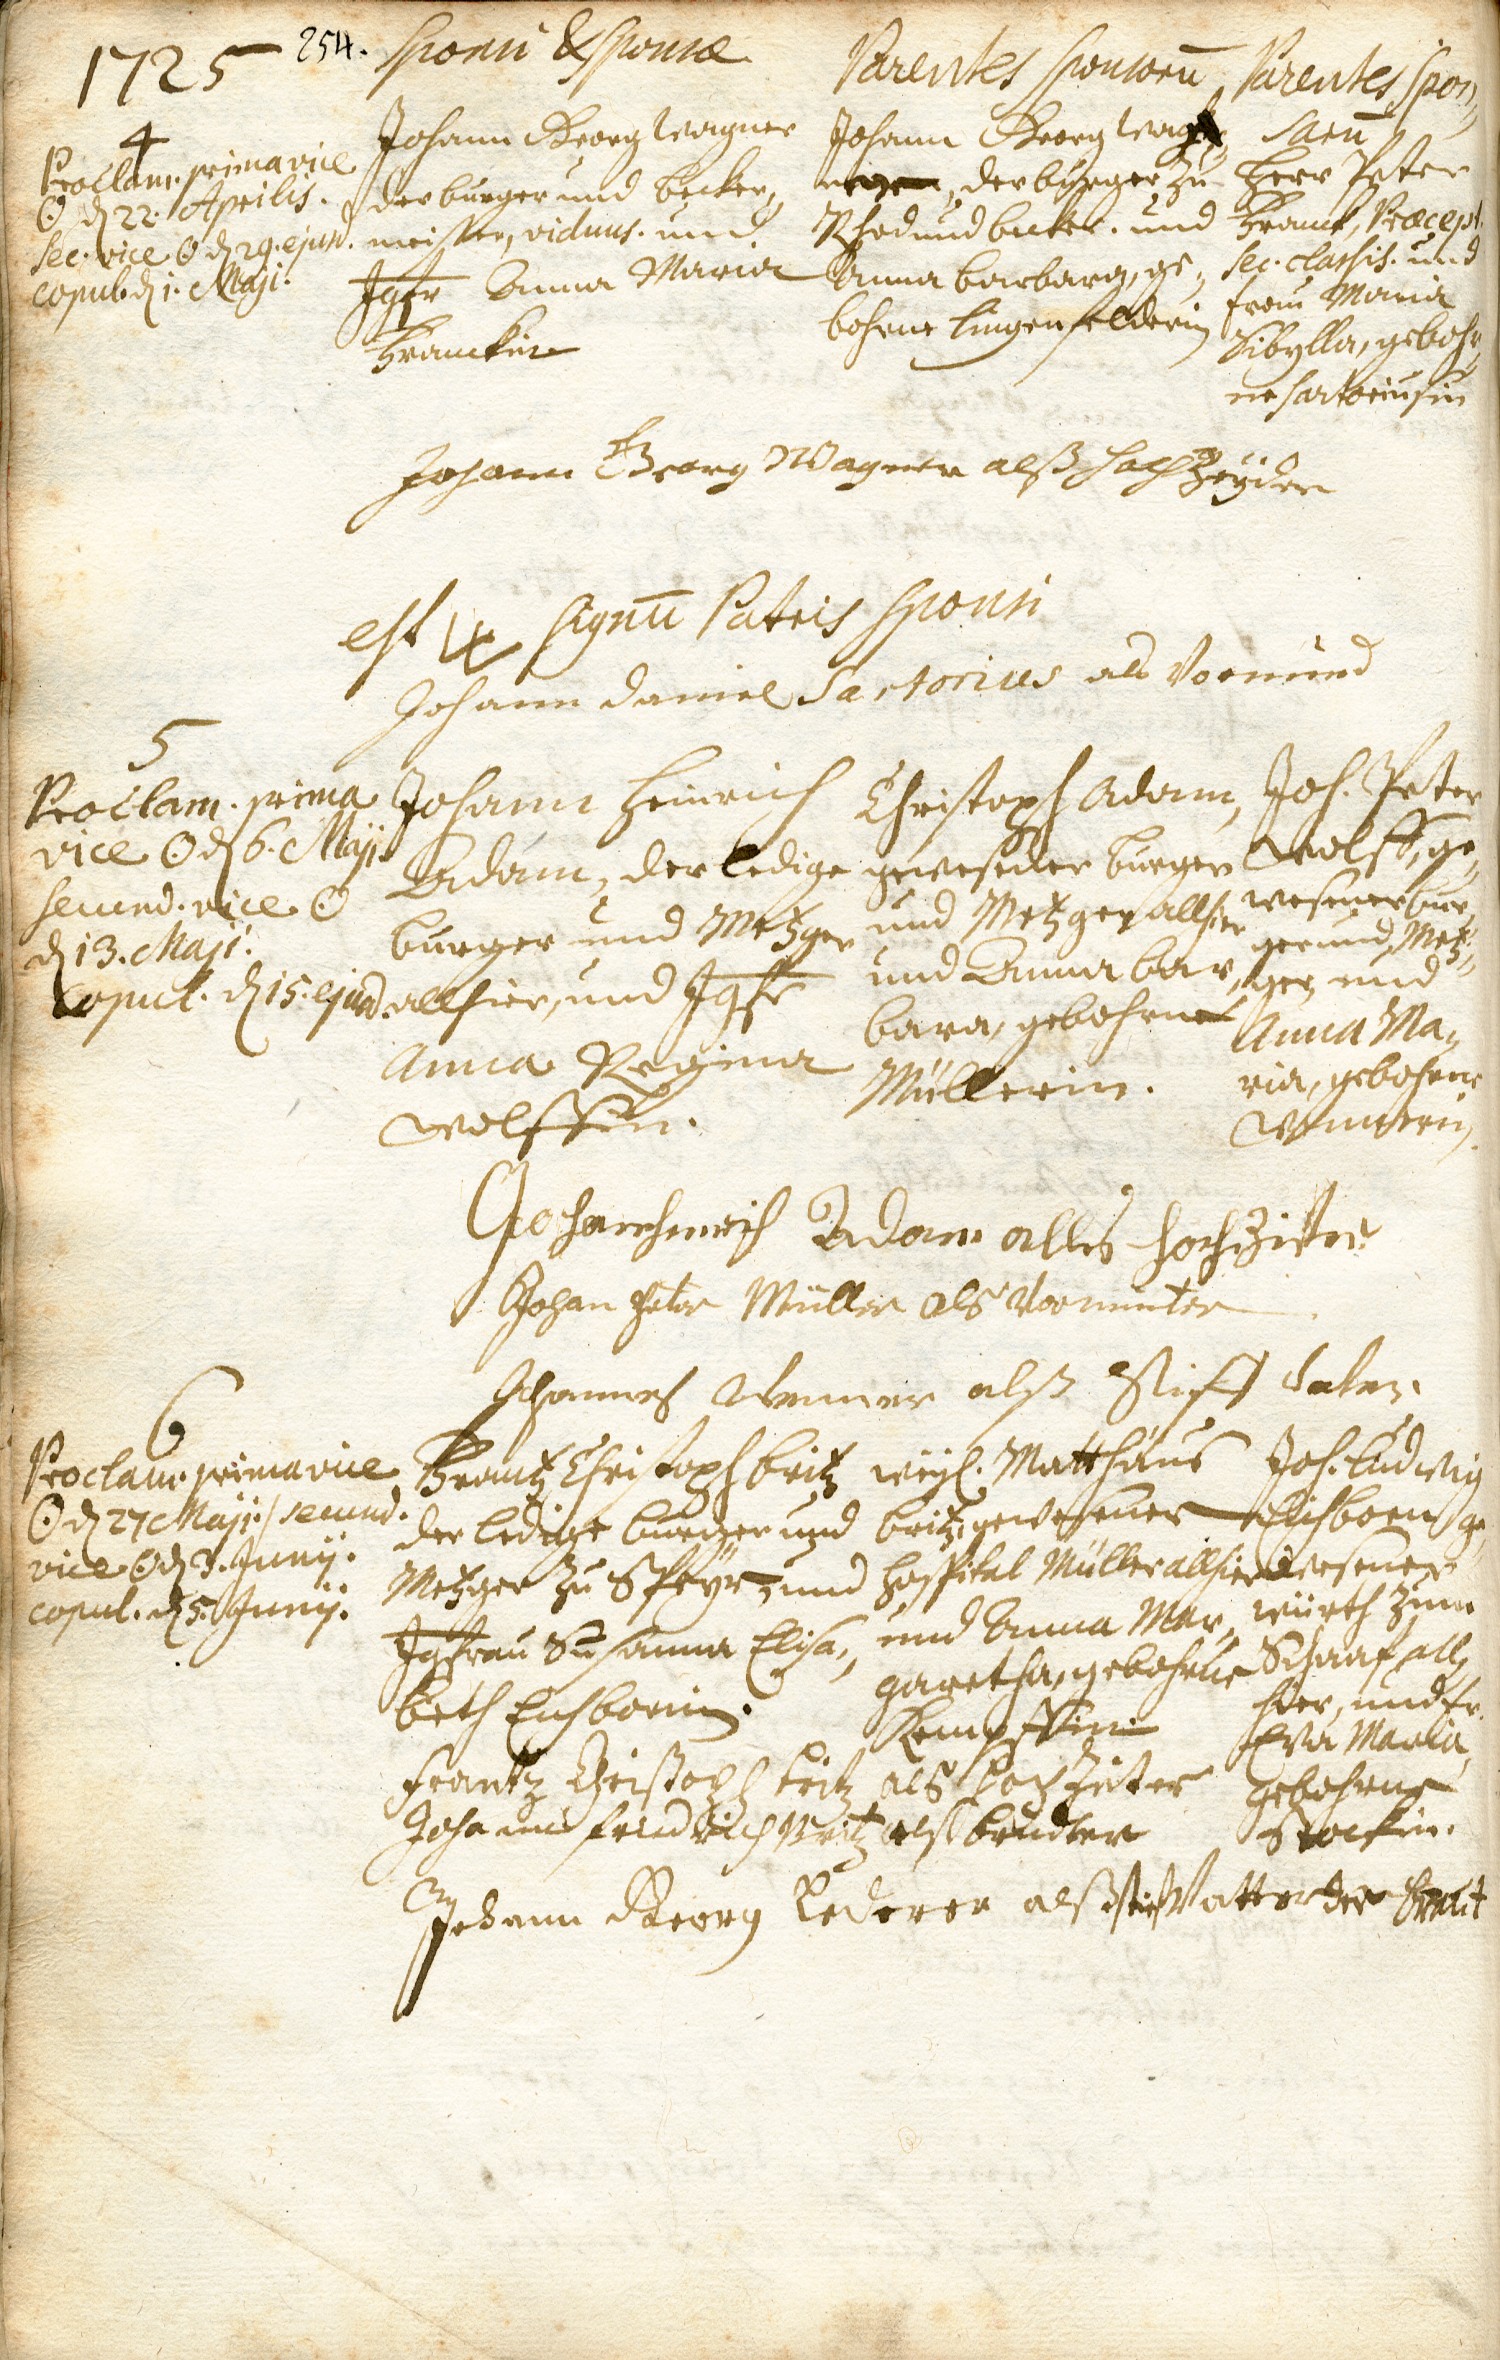 1725
254.
Sponsi & Sponsæ
Parentes Sponsorū
Parentes Spon„
sarū
4
Proclam. prima vice
☉ d 22. Aprilis.
sec. vice ☉ d 29. ejusd.
copul. d 1. Maji.
Johann Georg Wagner
der burger und becker„
meister, viduus. und
Jgfr Anna Maria
Franckin
Johann Georg Wag„
der burger zu
Rhod und becker. und
Anna barbara, ge„
bohrne Lingenfelderin
Herr Peter
Franck, Præcept.
sec. classis. und
frau Maria
Sibylla, gebohr„
ne Sartoriusin
Johann Georg Wagner alß hochzeyder
est signū Patris Sponsi
Johann Daniel Sartorius als Vormund
5
Proclam. prima
vice ☉ d 6. Maji
secund. vice ☉
d 13. Maji.
copul. d 15. ejusd.
Johann Heinrich
Adam, der ledige
burger und Metzger
allhier, und Jgfr
Anna Regina
Wolffin.
Christoph Adam,
gewesener burger
und Metzger allhier
und Anna bar„
bara, gebohrne
Müllerin.
Joh. Peter
Wolff, ge„
wesener bur„
ger und Metz„
ger, und
Anna Ma„
ria, gebohrne
Adam alles hochziter
Johan Peter Müller als Vormunter
Johannes alß
6
Proclam. prima vice
☉ d 27 Maji. / secund.
vice ☉ d 3. Junij.
copul. d 5. Junij.
Frantz Christoph britz
der ledige burger und
Metzger zu Speyr, und
Jgfrau Susanna Elisa„
beth Eichbornin.
weyl. Matthäus
britz, gewesener
Hospital Müller allhier
und Anna Mar„
garetha, gebohrne
Kempffin
Joh. Ludwig
Eichborn ge„
wesener
würth zum
Schaaf all„
hier, und fr.
Eva Maria,
gebohrne
Stockin.
Frantz Christoph britz als hochzeiter
Johann Fridrich Britz alß bruder
Johann Georg Lederer alß stieff Vatter der braut